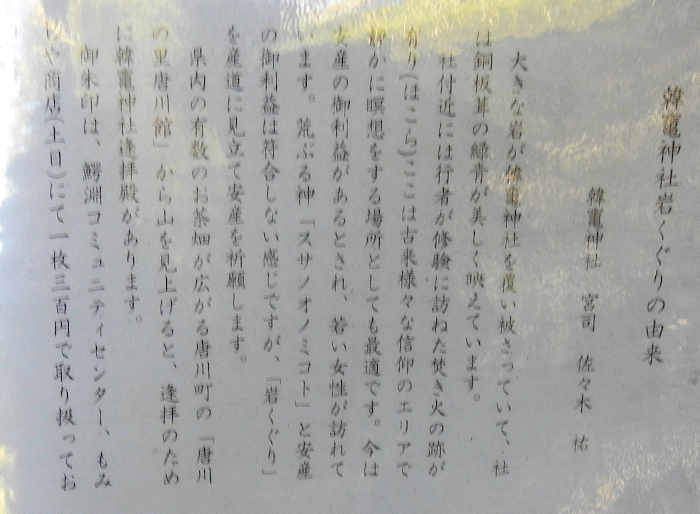 韓竈神社岩くぐりの由来
韓竈神社 宮司 佐々木 祐
大きな岩が韓竈神社を覆い被さっていて、社
は銅板葺の緑青が美しく映えています。
社付近には行者が修験に訪ねた焚き火の跡が
有り(ほこら)ここは古来様々な信仰のエリアで
静かに瞑想をする場所としても最適です。今は
安産の御利益があるとされ、若い女性が訪れて
います。荒ぶる神「スサノオノミコト」と安産
の御利益は符合しない感じですが、「岩くぐり」
を産道に見立て安産を祈願します。
県内の有数のお茶畑が広がる唐川町の「唐川
の里唐川館」から山を見上げると、逢拝のため
に韓竈神社逢拝殿があります。
御朱印は、鰐淵コミュニティセンター、もみ
や商店(土日)にて一枚三百円で取り扱ってお